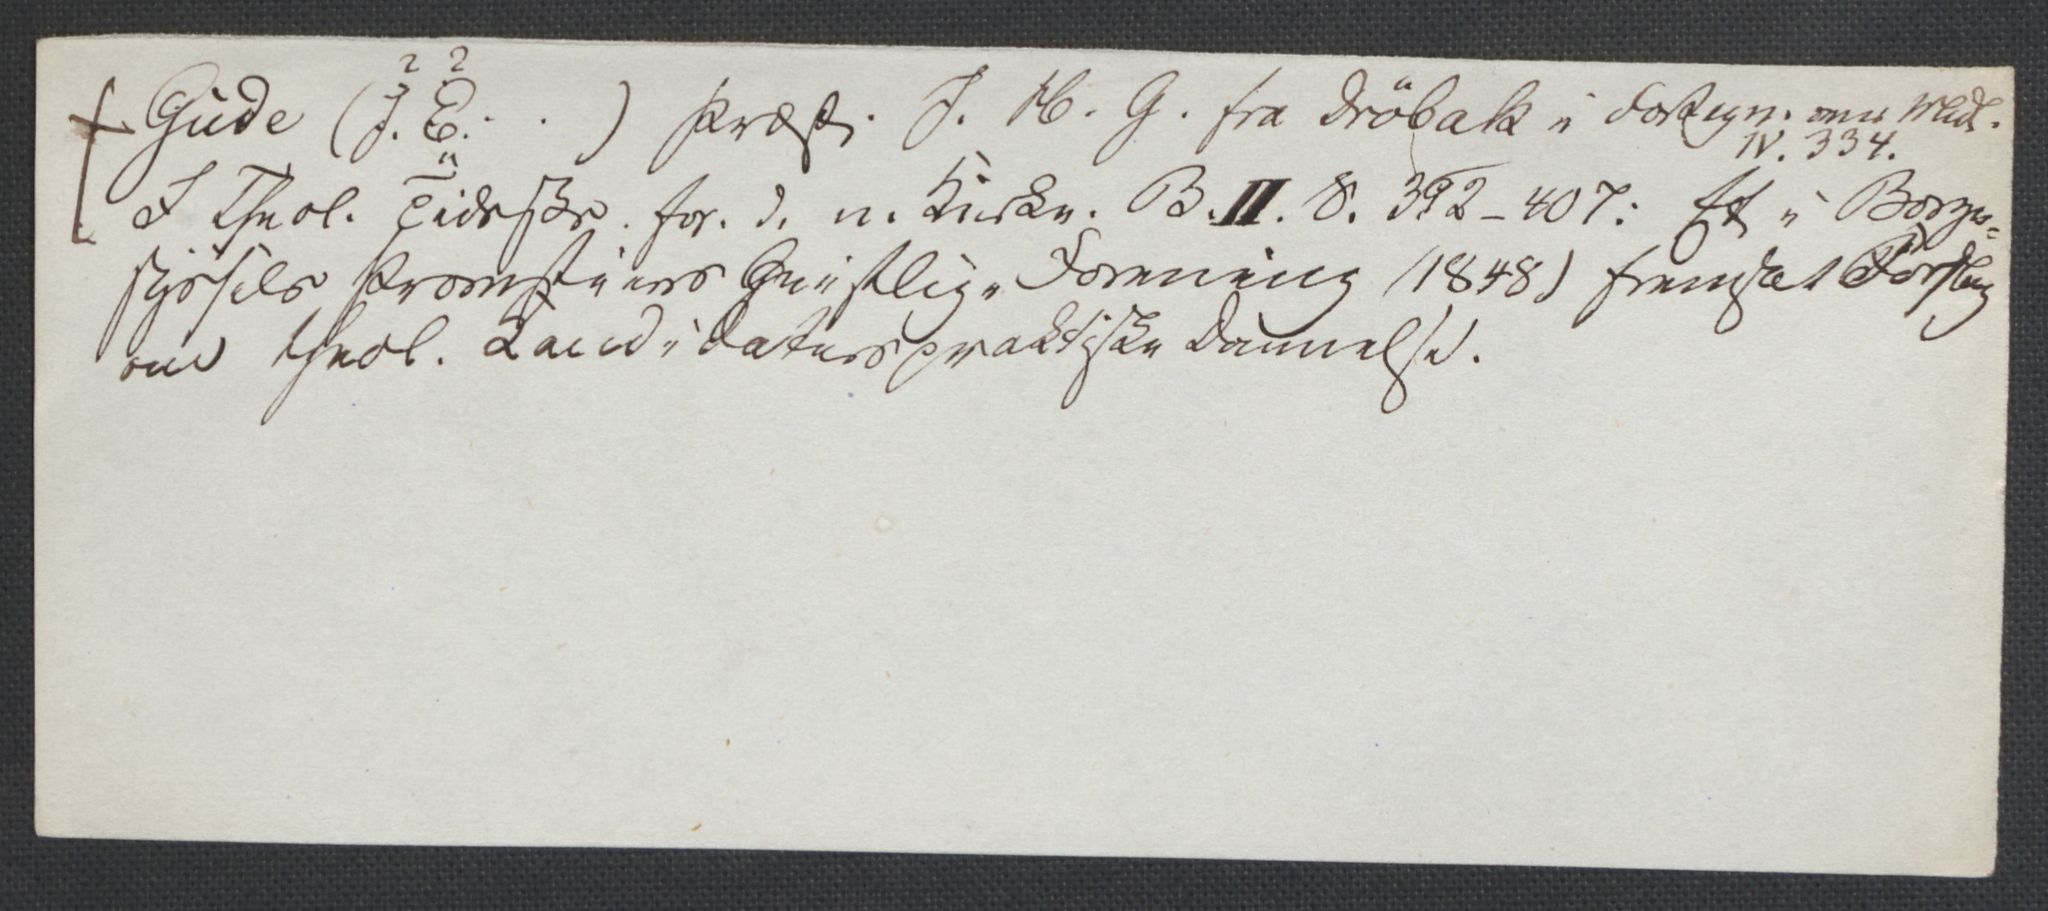 ? ?
Gude (J. E. . . ) Præst. J. H. G. fra Dröbak i Fortegn. over Medl.
IV. 334.
I Theol. Tidsskr. for. d. n. Kirke. B. II. S. 392-407: Et i Borge-
syssels Provstiers Geistlige Forening (1848) fremsat Forslag
om theol. Kandidaters praktiske Dannelse.